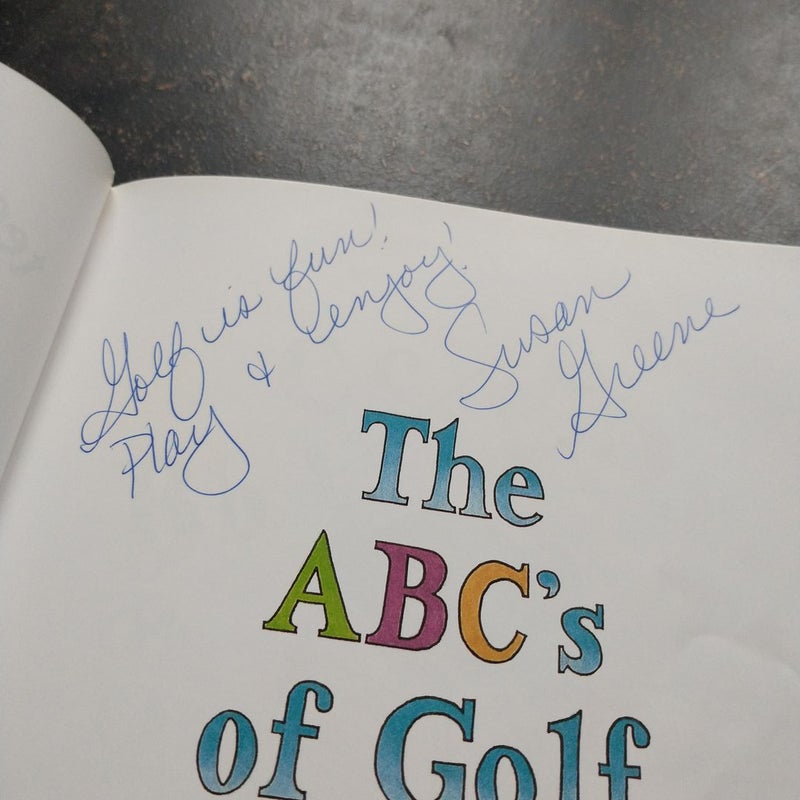 Golf is fun!
Play & enjoy!
Susan
Greene
The
ABC's
of Golf